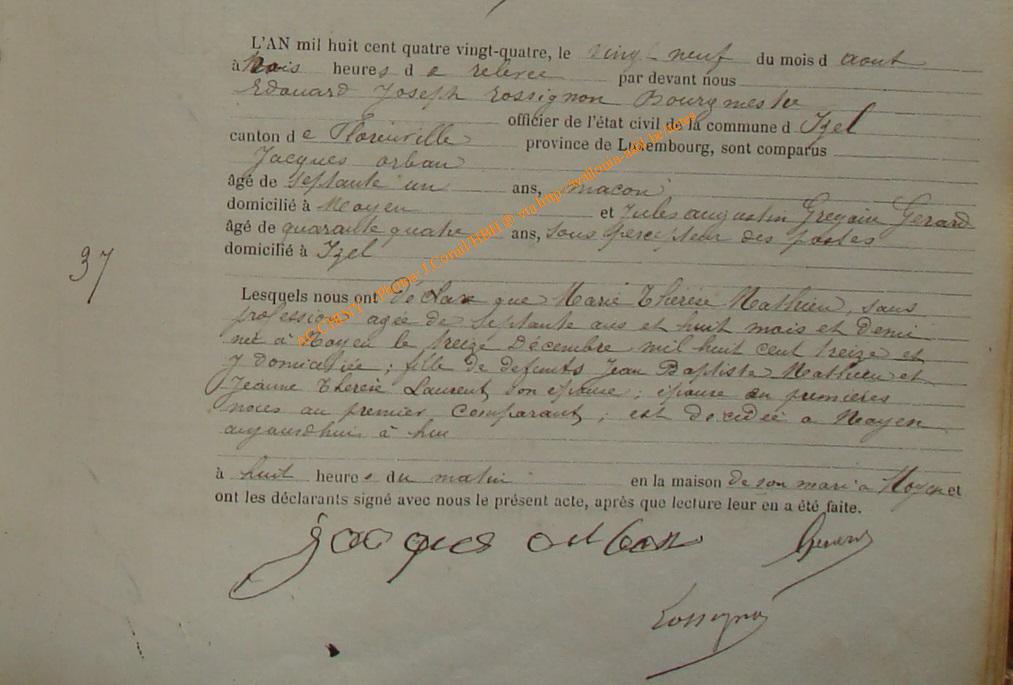 L'AN mil huit cent quatre vingt-quatre, le vingt neuf du mois d aout
à trois heures d e relevée par devant nous
Edouard Joseph Rossignon Bourgmestre
officier de l'état civil de la commune d Izel
canton d e Florenville province de Luxembourg, sont comparus
Jacques orban
âgé de septante un ans, macon
domicilié à Moyen et Jules augustin Grégoire Gerard
âgé de quarante quatre ans, sous percepteur des postes
domicilié à Izel
37
Lesquels nous ont déclaré que Marie Thérèse Mathieu, sans
profession agée de septante ans et huit mois et demi
née à Moyen le treize Décembre mil huit cent treize et
y domiciliée; fille de defunts Jean Baptiste Mathieu et
Jeanne Thérèse Laurent son épouse; épouse en premières
noces au premier comparant; est décédée a Moyen
aujourdhui à huit
à huit heure s du matin en la maison de son mari a Moyen et
ont les déclarants signé avec nous le présent acte, après que lecture leur en a été faite.
jacques orban Gerard
Rossignon